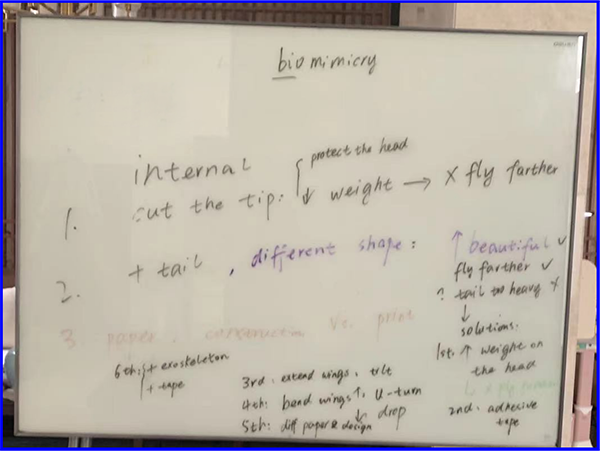 biomimicry
internal
protect the head
1. cut the tip: ↓ weight → X fly farther
2. + tail, different shape: ↑ beautiful ✓
fly farther ✓
? tail too heavy X
↓
solutions:
1st. ↑ weight on
the head
2nd. adhesive
tape
3 paper. construction Vs. print
6th: + exoskeleton
+ tape
3rd. extend wings, tilt
4th: bend wings ↑, U-turn
↓ drop
5th: diff paper & design